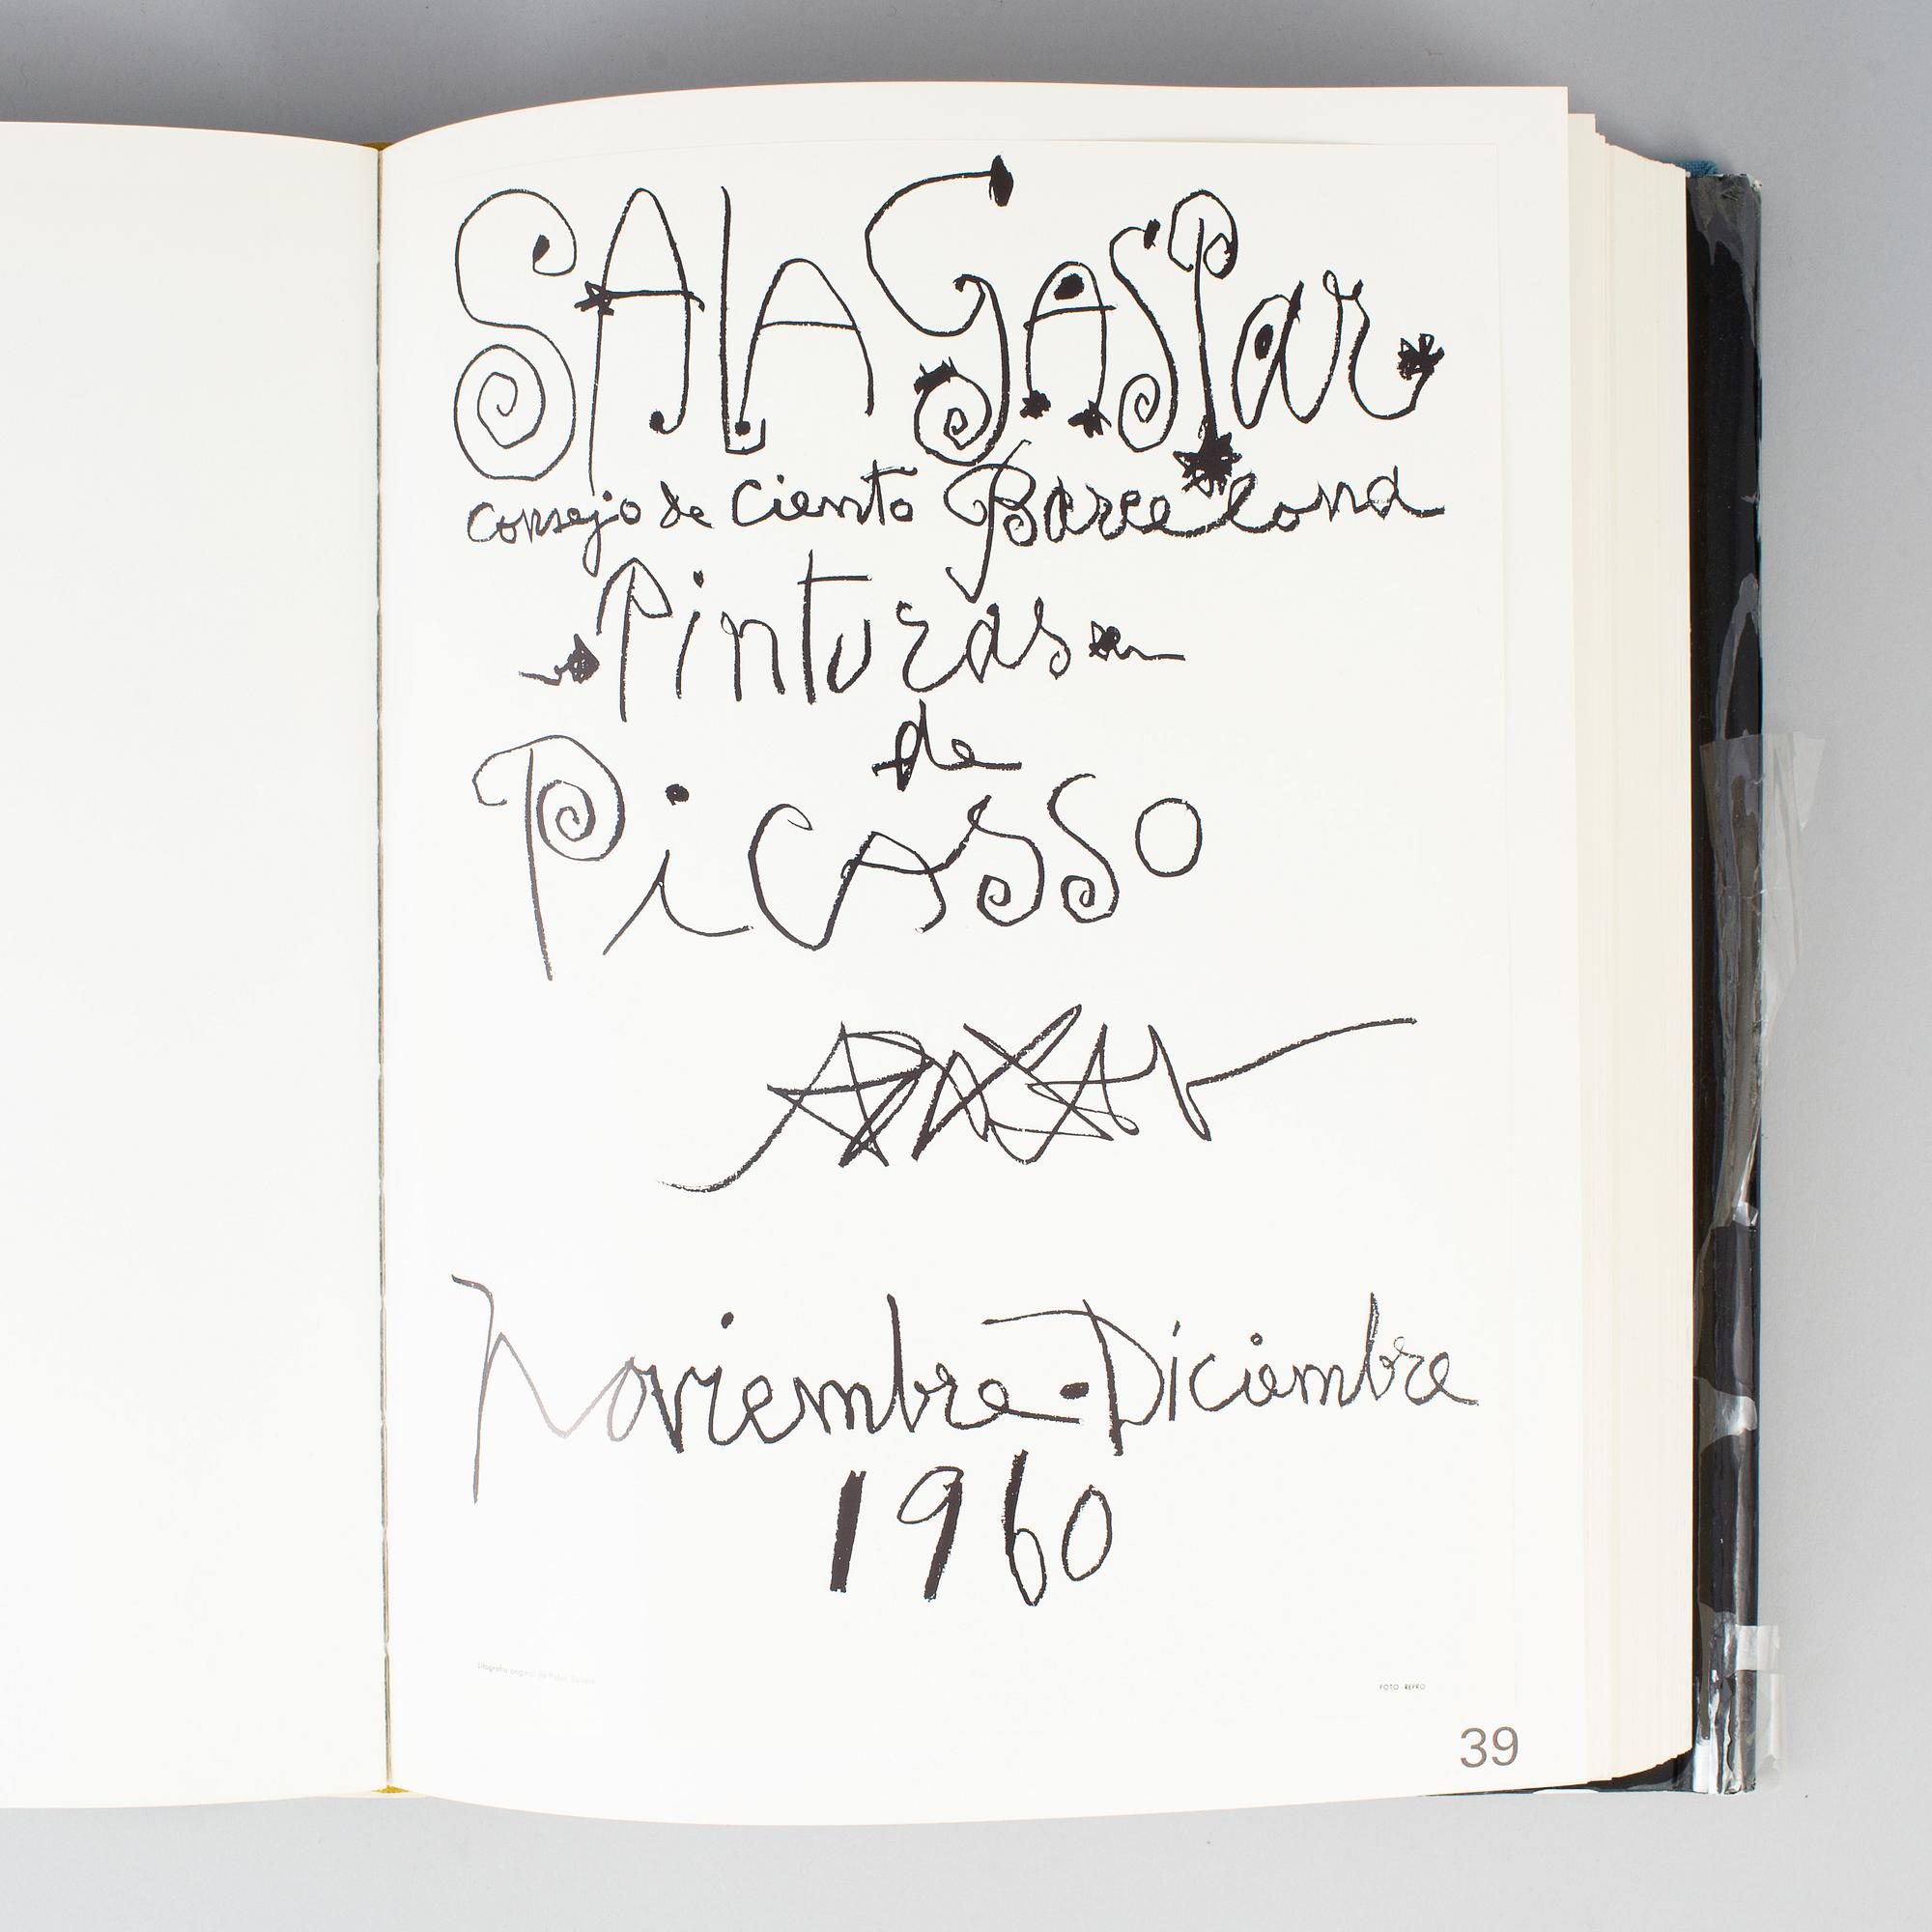 SALA GASPar
consejo de Ciento Barcelona
Pinturas
de
Picasso
Noviembre - Diciembre
1960
Litografía original de Pablo Picasso
FOTO-REPRO
39